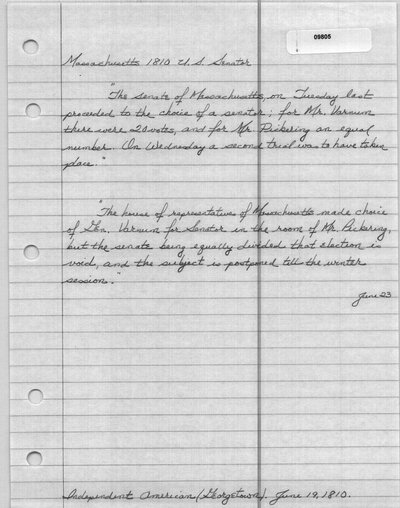 09805
Massachusetts 1810 U.S. Senator
"The senate of Massachusetts, on Tuesday last
proceeded to the choice of a senator; for Mr. Varnum
there were 20 votes, and for Mr. Pickering an equal
number. On Wednesday a second trial was to have taken
place."
"The house of representatives of Massachusetts made choice
of Gen. Varnum for Senator in the room of Mr. Pickering,
but the senate being equally divided that election is
void, and the subject is postponed till the winter
session."
June 23
Independent American (Georgetown). June 19, 1810.